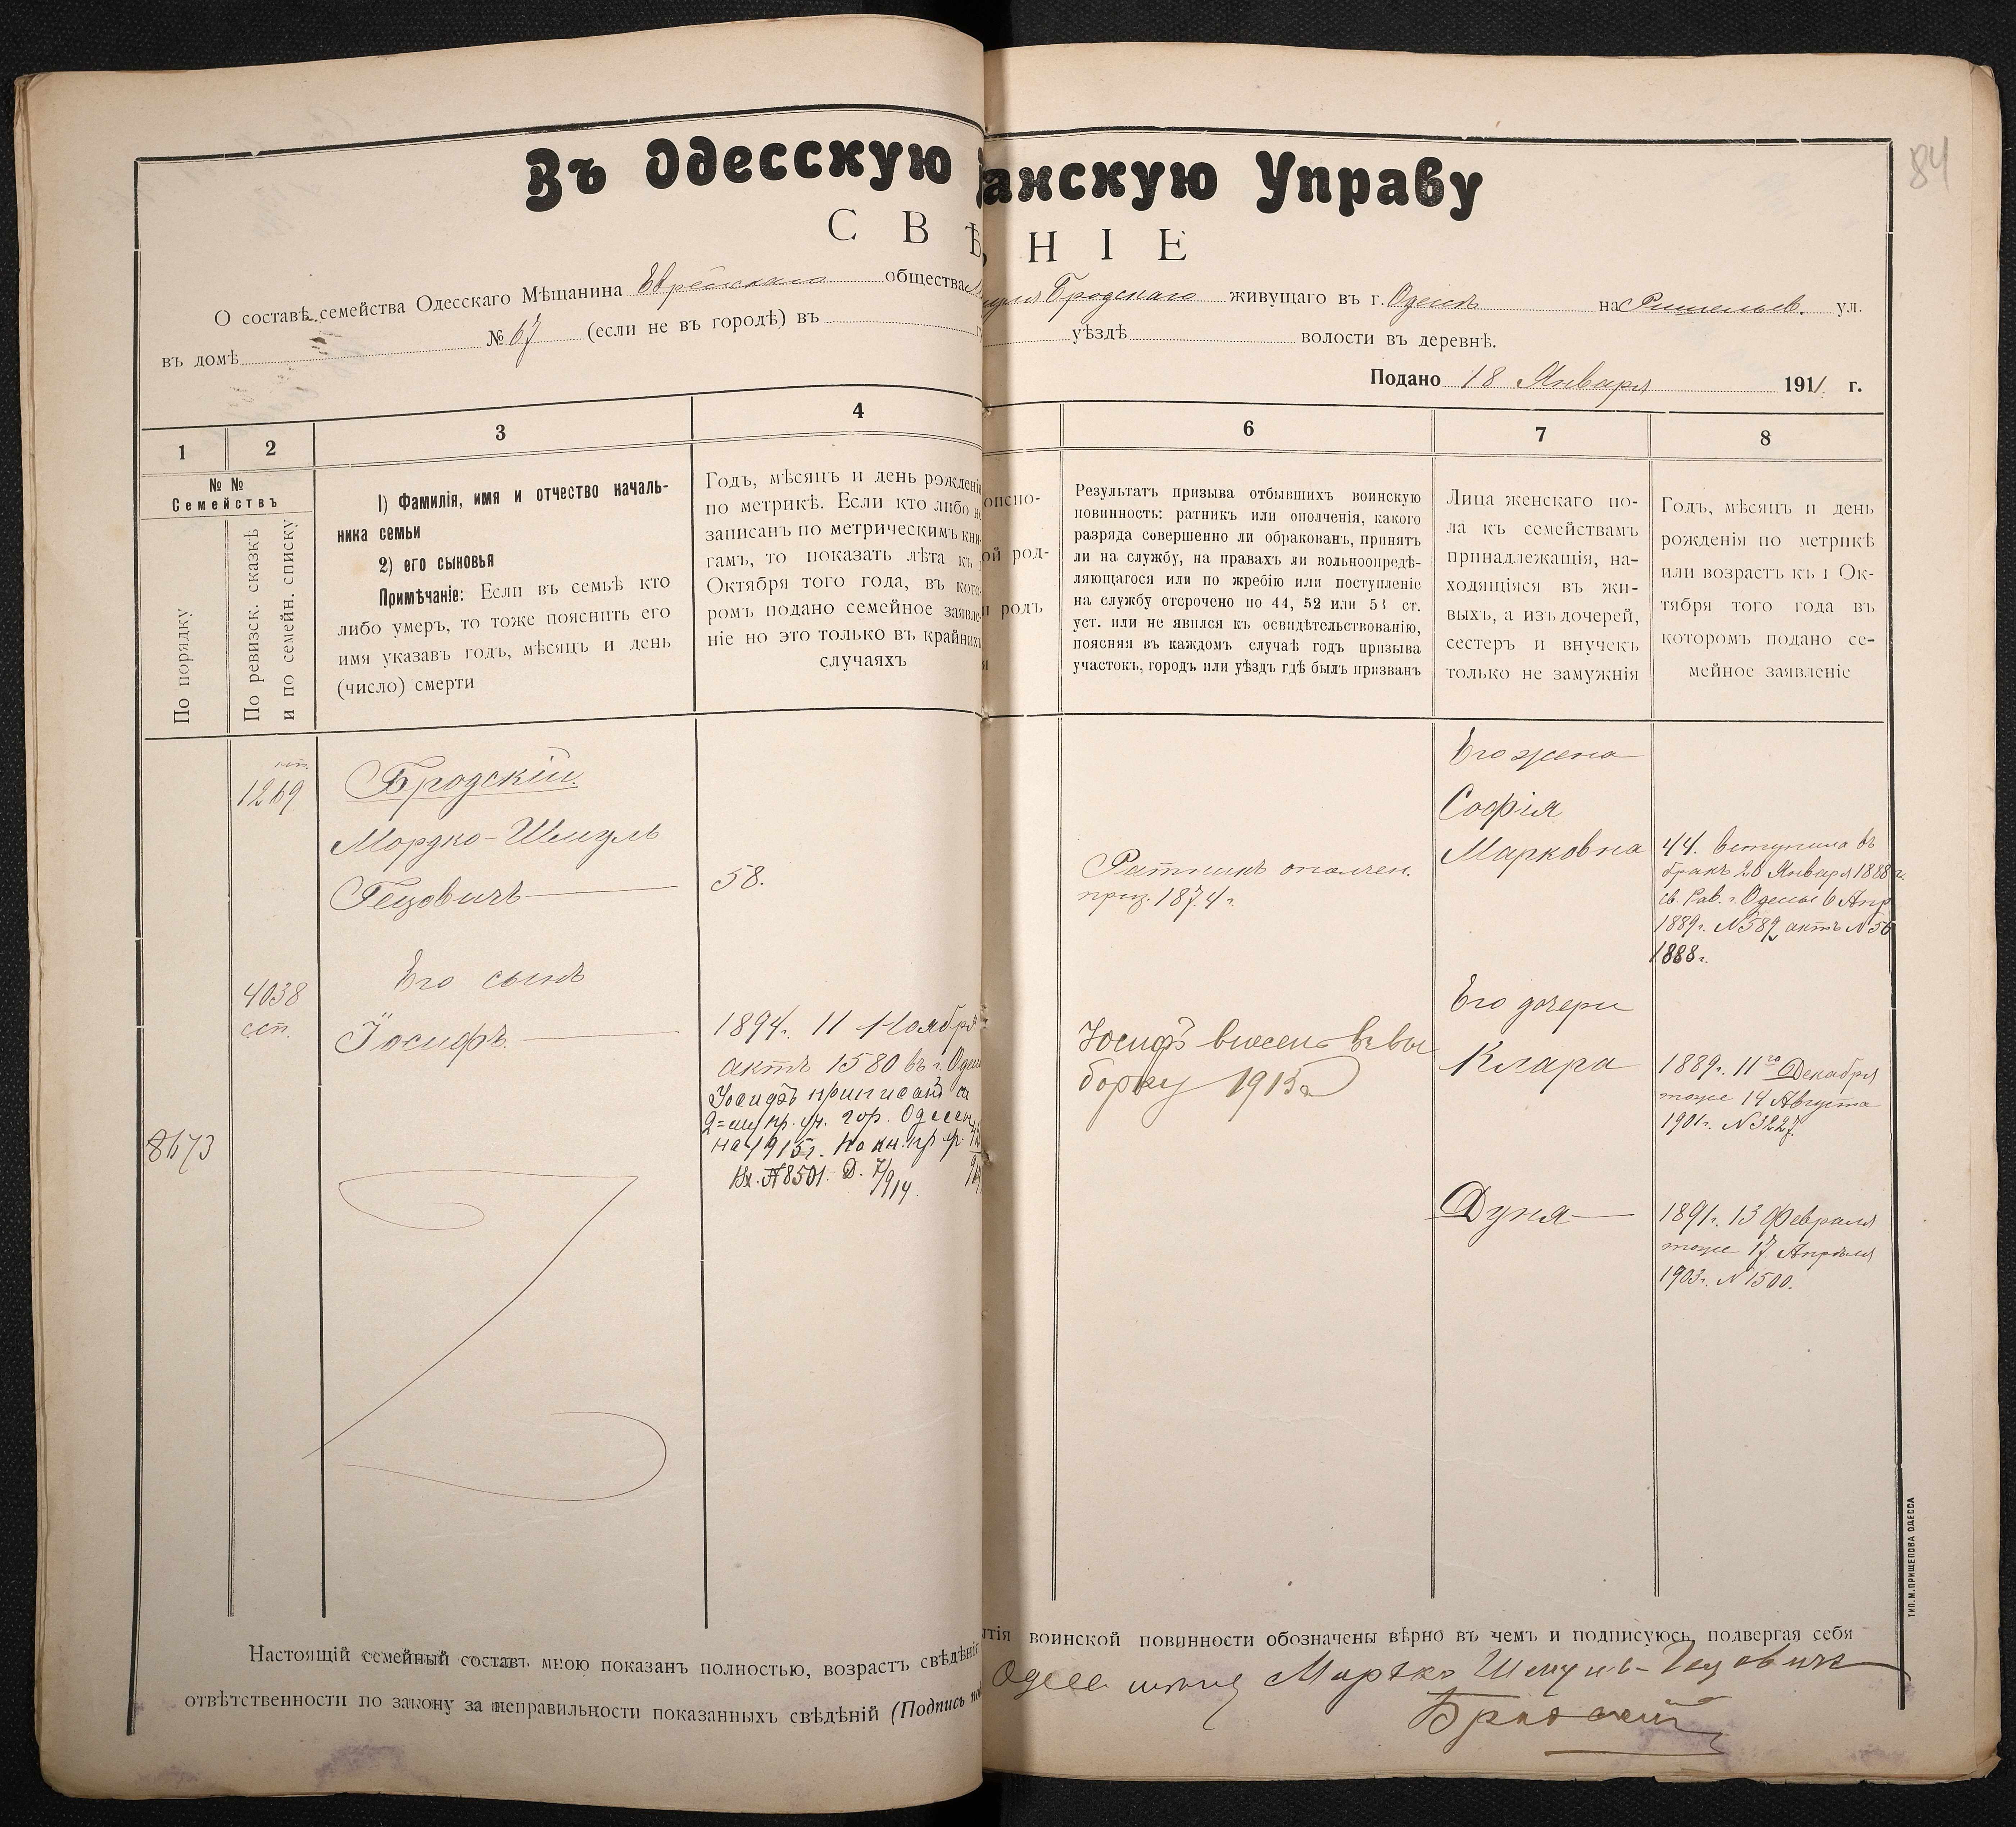 Въ Одесскую
анскую Управу
84
С В Ѣ
Н І Е
О составѣ семейства Одесскаго Мѣщанина Еврейскаго общества
Бродскаго живущаго въ г. Одессѣ на Ришельев. ул.
въ домѣ № 67 (если не въ городѣ) въ
уѣздѣ волости въ деревнѣ.
Подано 18 Января 1911 г.
1
2
3
4
6
7
8
№ №
Семействъ
По порядку
По ревизск. сказкѣ
и по семейн. списку
1) Фамилія, имя и отчество началь-
ника семьи
2) его сыновья
Примѣчаніе: Если въ семьѣ кто
либо умеръ, то тоже пояснить его
имя указавъ годъ, мѣсяцъ и день
(число) смерти
Годъ, мѣсяцъ и день рожденія
по метрикѣ. Если кто либо не
записанъ по метрическимъ кни-
гамъ, то показать лѣта къ
Октября того года, въ кото-
ромъ подано семейное заявле-
ніе но это только въ крайнихъ
случаяхъ
ой род-
и родъ
я
Результатъ призыва отбывшихъ воинскую
повинность: ратникъ или ополченія, какого
разряда совершенно ли обракованъ, принятъ
ли на службу, на правахъ ли вольноопредѣ-
ляющагося или по жребію или поступленіе
на службу отсрочено по 44, 52 или 53 ст.
уст. или не явился къ освидѣтельствованію,
поясняя въ каждомъ случаѣ годъ призыва
участокъ, городъ или уѣздъ гдѣ былъ призванъ
Лица женскаго по-
ла къ семействамъ
принадлежащія, на-
ходящіяся въ жи-
выхъ, а изъ дочерей,
сестеръ и внучекъ
только не замужнія
Годъ, мѣсяцъ и день
рожденія по метрикѣ
или возрастъ къ 1 Ок-
тября того года въ
которомъ подано се-
мейное заявленіе
1269
Бродскій
Мордко-Шмуль
Гецовичъ
58.
Ратникъ ополчен.
приз. 1874 г.
Его жена
Софія
Марковна
44. Вступила въ
бракъ 20 Января 1888 г.
св. Рав. г. Одессы 6 Апр
1889 г. № 589 актъ № 56
1888 г.
4038
сп.
Его сынъ
Іосифъ
1894 г. 11 Ноября
актъ 1580 въ г. Одес
Іосифъ приписанъ ко
2=му пр. уч. гор. Одессы
на 1915 г. по кн. пр. уч.
Вх. № 8501. Д. 7/914.
Іосифъ внесенъ въ вы
борку 1915 г.
Его дочери
Клара
1889 г. 11го Декабря
тоже 14 Августа
1901 г. № 3227.
8673
Дуня
1891 г. 13 Февраля
тоже 17 Апрѣля
1903 г. № 1500.
Настоящій семейный составъ мною показанъ полностью, возрастъ свѣдѣнія
тія воинской повинности обозначены вѣрно въ чемъ и подписуюсь, подвергая себя
отвѣтственности по закону за неправильности показанныхъ свѣдѣній (Подпись
Одес. Мордко Шмуль-Гецовичъ
Бродский
ТИП. М. ПРИЩЕПОВА ОДЕССА